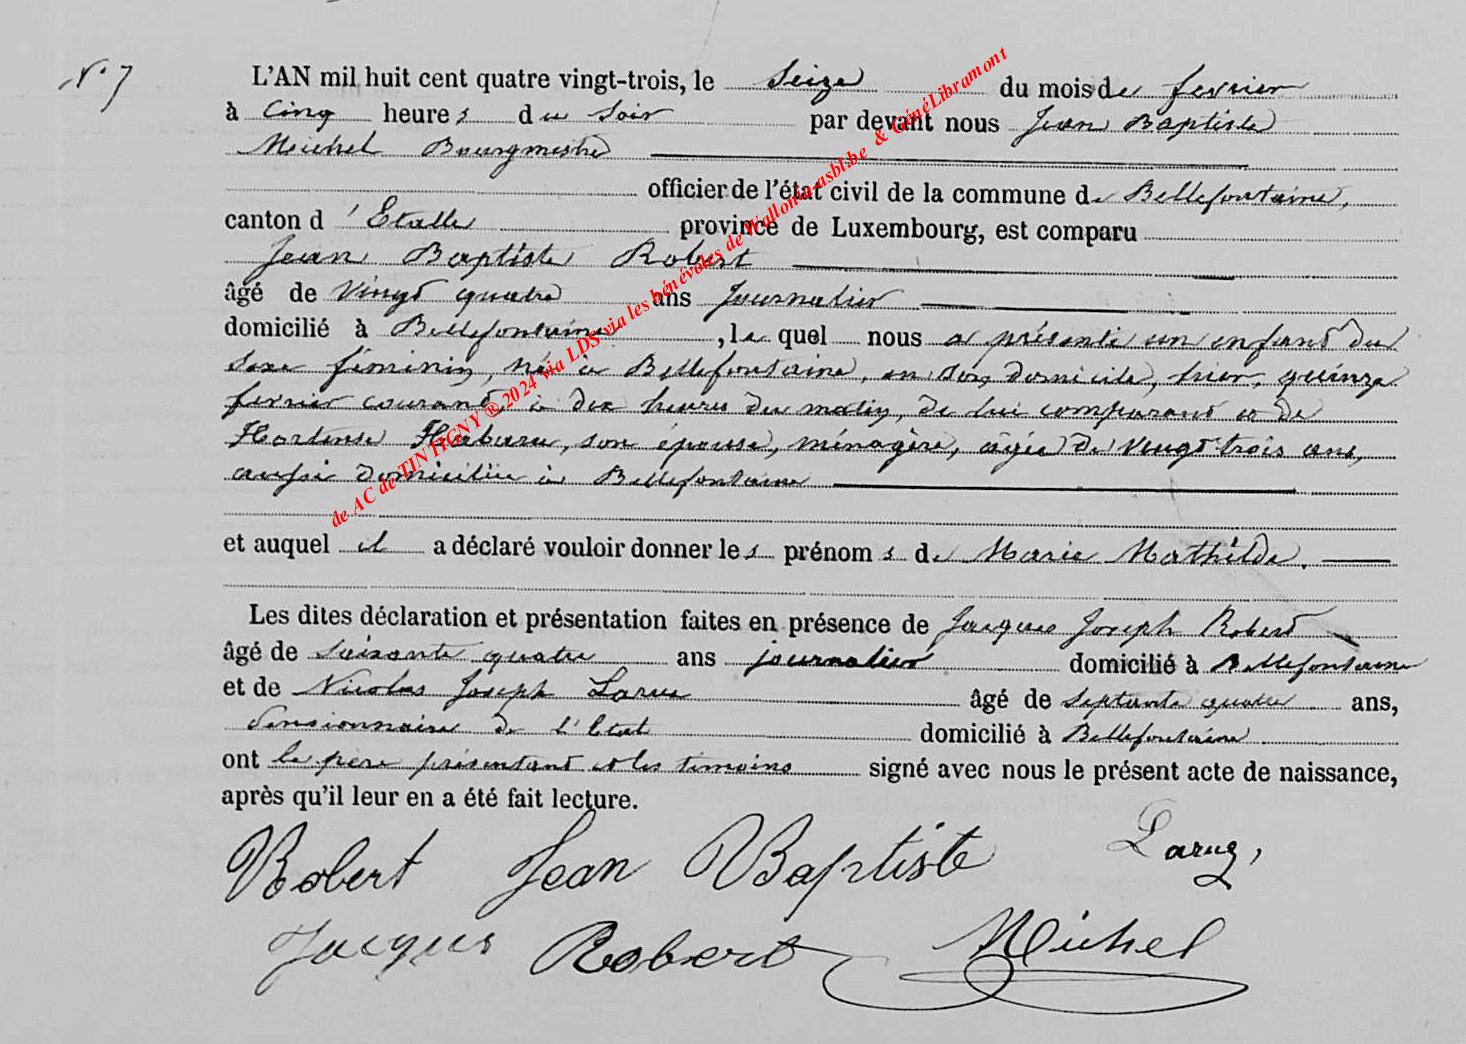 N° 7
L'AN mil huit cent quatre vingt-trois, le Seize du mois de fevrier
à cinq heures du soir par devant nous Jean Baptiste
Michel Bourgmestre
officier de l'état civil de la commune de Bellefontaine,
canton d'Etalle province de Luxembourg, est comparu
Jean Baptiste Robert
âgé de vingt quatre ans Journalier
domicilié à Bellefontaine, lequel nous a présenté un enfant du
sexe féminin, né à Bellefontaine, en son domicile, hier, quinze
fevrier courant, à dix heures du matin, de lui comparant et de
Hortense son épouse, ménagère, âgée de vingt trois ans,
aussi domiciliée à Bellefontaine
et auquel il a déclaré vouloir donner les prénoms de Marie Mathilde.
Les dites déclaration et présentation faites en présence de Jacques Joseph Robert
âgé de soixante quatre ans journalier domicilié à Bellefontaine
et de Nicolas Joseph Larue âgé de septante quatre ans,
Pensionnaire de l'Etat domicilié à Bellefontaine
ont le père présentant et les témoins signé avec nous le présent acte de naissance,
après qu'il leur en a été fait lecture.
Robert Jean Baptiste
Jacques Robert Michel
de AC de TINTIGNY ® 2024 via LDS via les bénévoles de Wallonia-asbl.be & GénéLibramont